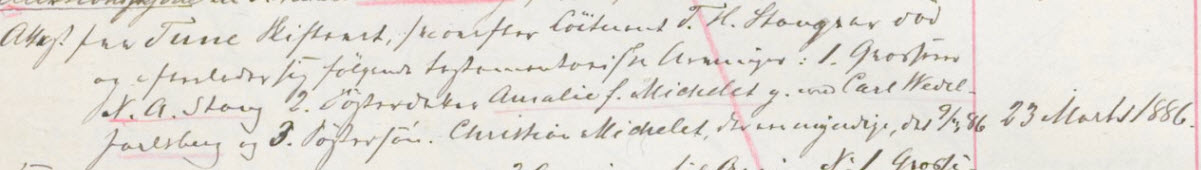 Attest fra Tune Skifteret, hvorefter Löitnant T. H. Stang er död
og efterlader sig følgende testamentariske Arvinger: 1. Grosserer
N. A. Stang 2. Søsterdatter Amalie f. Michelet g. med Carl Wedel-
Jarlsberg og 3. Søstersön Christian Michelet, der ere myndige, dat 86 23 Marts 1886.
N. 1 Grosse-